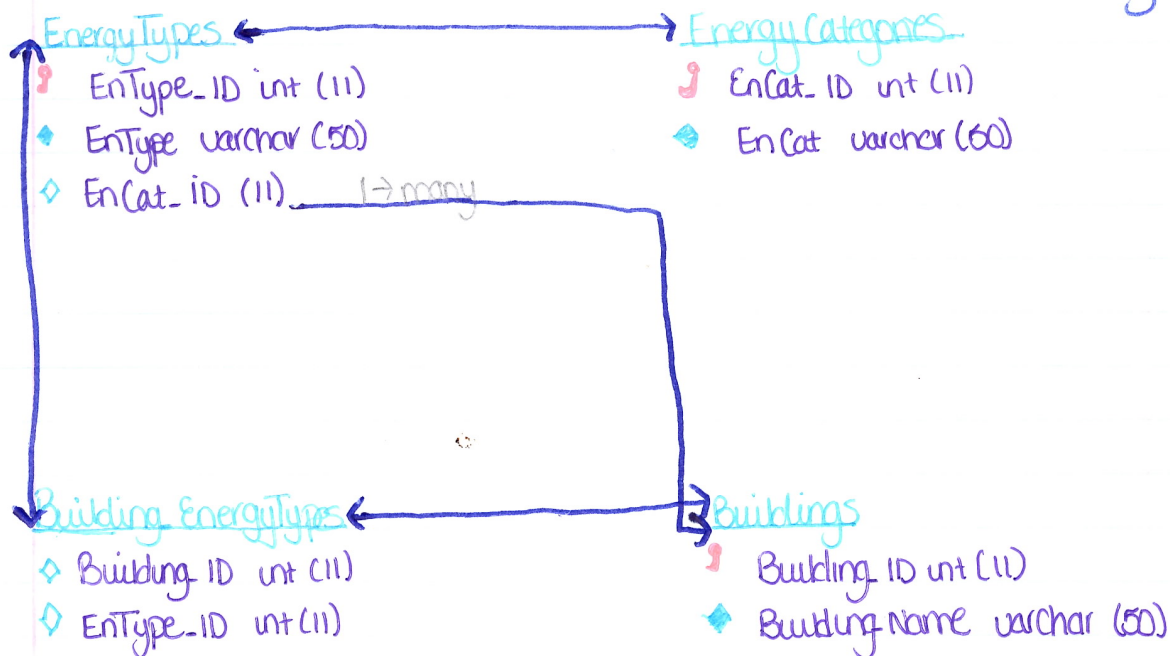 EnergyTypes
EnType_ID int (11)
EnType varchar (50)
EnCat_ID (11)
1→many
Energy Categories
EnCat_ID int (11)
EnCat varchar (50)
Building EnergyTypes
Building_ID int (11)
EnType_ID int (11)
Buildings
Building_ID int (11)
Building Name varchar (50)